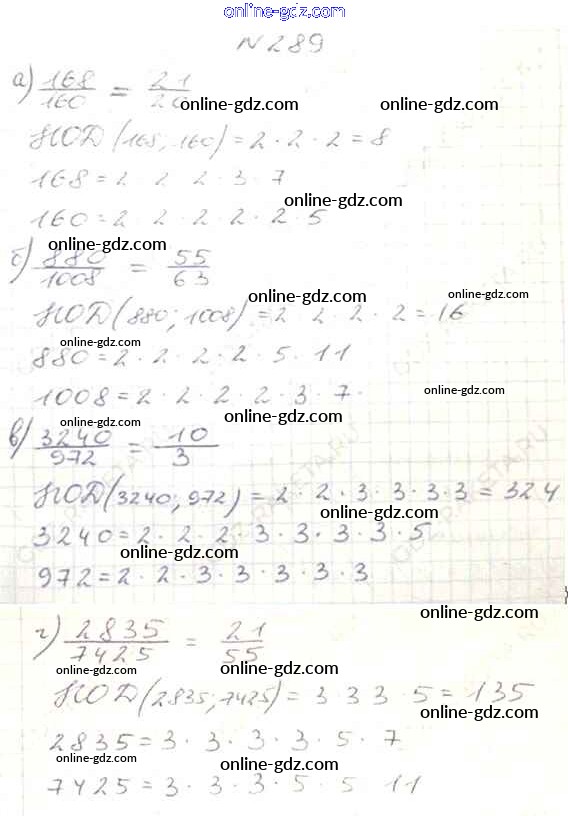 online-gdz.com
N 289
а) 168/160 = 21/20
online-gdz.com online-gdz.com
НОД (168; 160) = 2 · 2 · 2 = 8
168 = 2 2 2 · 3 · 7
online-gdz.com
160 = 2 · 2 · 2 · 2 · 2 · 5
online-gdz.com
б) 880/1008 = 55/63
online-gdz.com online-gdz.com
НОД (880; 1008) = 2 2 · 2 · 2 = 16
online-gdz.com
880 = 2 · 2 · 2 · 2 · 5 · 11
online-gdz.com
1008 = 2 · 2 · 2 · 2 · 3 · 7 ·
online-gdz.com online-gdz.com
в) 3240/972 = 10/3
НОД (3240; 972) = 2 · 2 · 3 · 3 · 3 · 3 = 324
online-gdz.com
3240 = 2 · 2 · 2 · 3 · 3 · 3 · 3 · 5
online-gdz.com
972 = 2 · 2 · 3 · 3 · 3 · 3 · 3
online-gdz.com
г) 2835/7425 = 21/55
online-gdz.com online-gdz.com
НОД (2835; 7425) = 3 · 3 · 3 · 5 = 135
online-gdz.com
2835 = 3 · 3 · 3 · 3 · 5 · 7
online-gdz.com online-gdz.com
7425 = 3 · 3 · 3 · 5 · 5 11